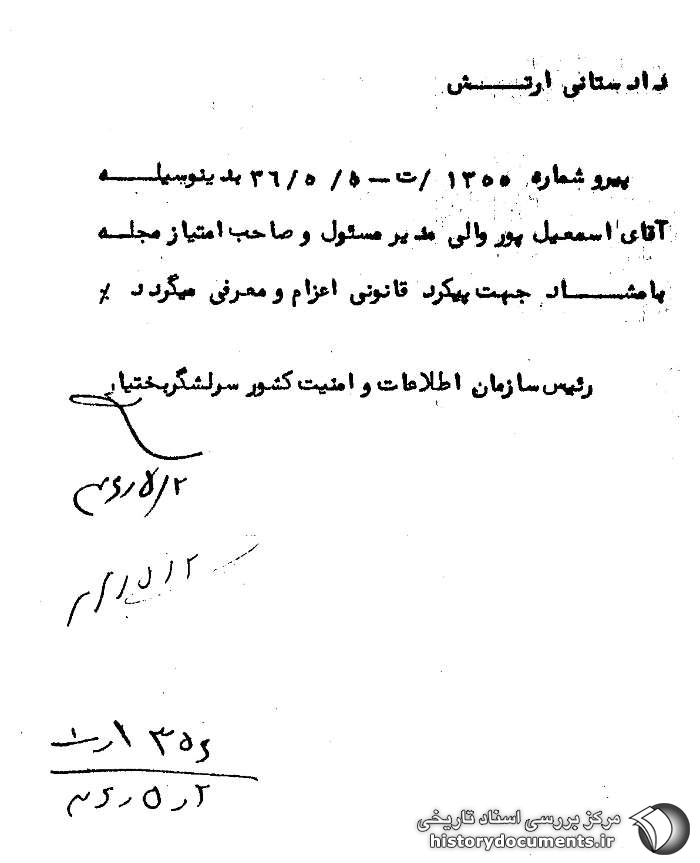 دادستانی ارتش
پیرو شماره ۱۳۵۵ /ت – ۵ /۵ /۳۶ بدینوسیله
آقای اسمعیل پور والی مدیر مسئول و صاحب امتیاز مجله
بامشاد جهت پیکرد قانونی اعزام و معرفی میگردد ٪
رئیس سازمان اطلاعات و امنیت کشور سرلشگر بختیار
۲/۵/۳۶
۲/۵/۳۶
۱۳۵۶
۲/۵/۳۶
مرکز بررسی اسناد تاریخی
historydocuments.ir